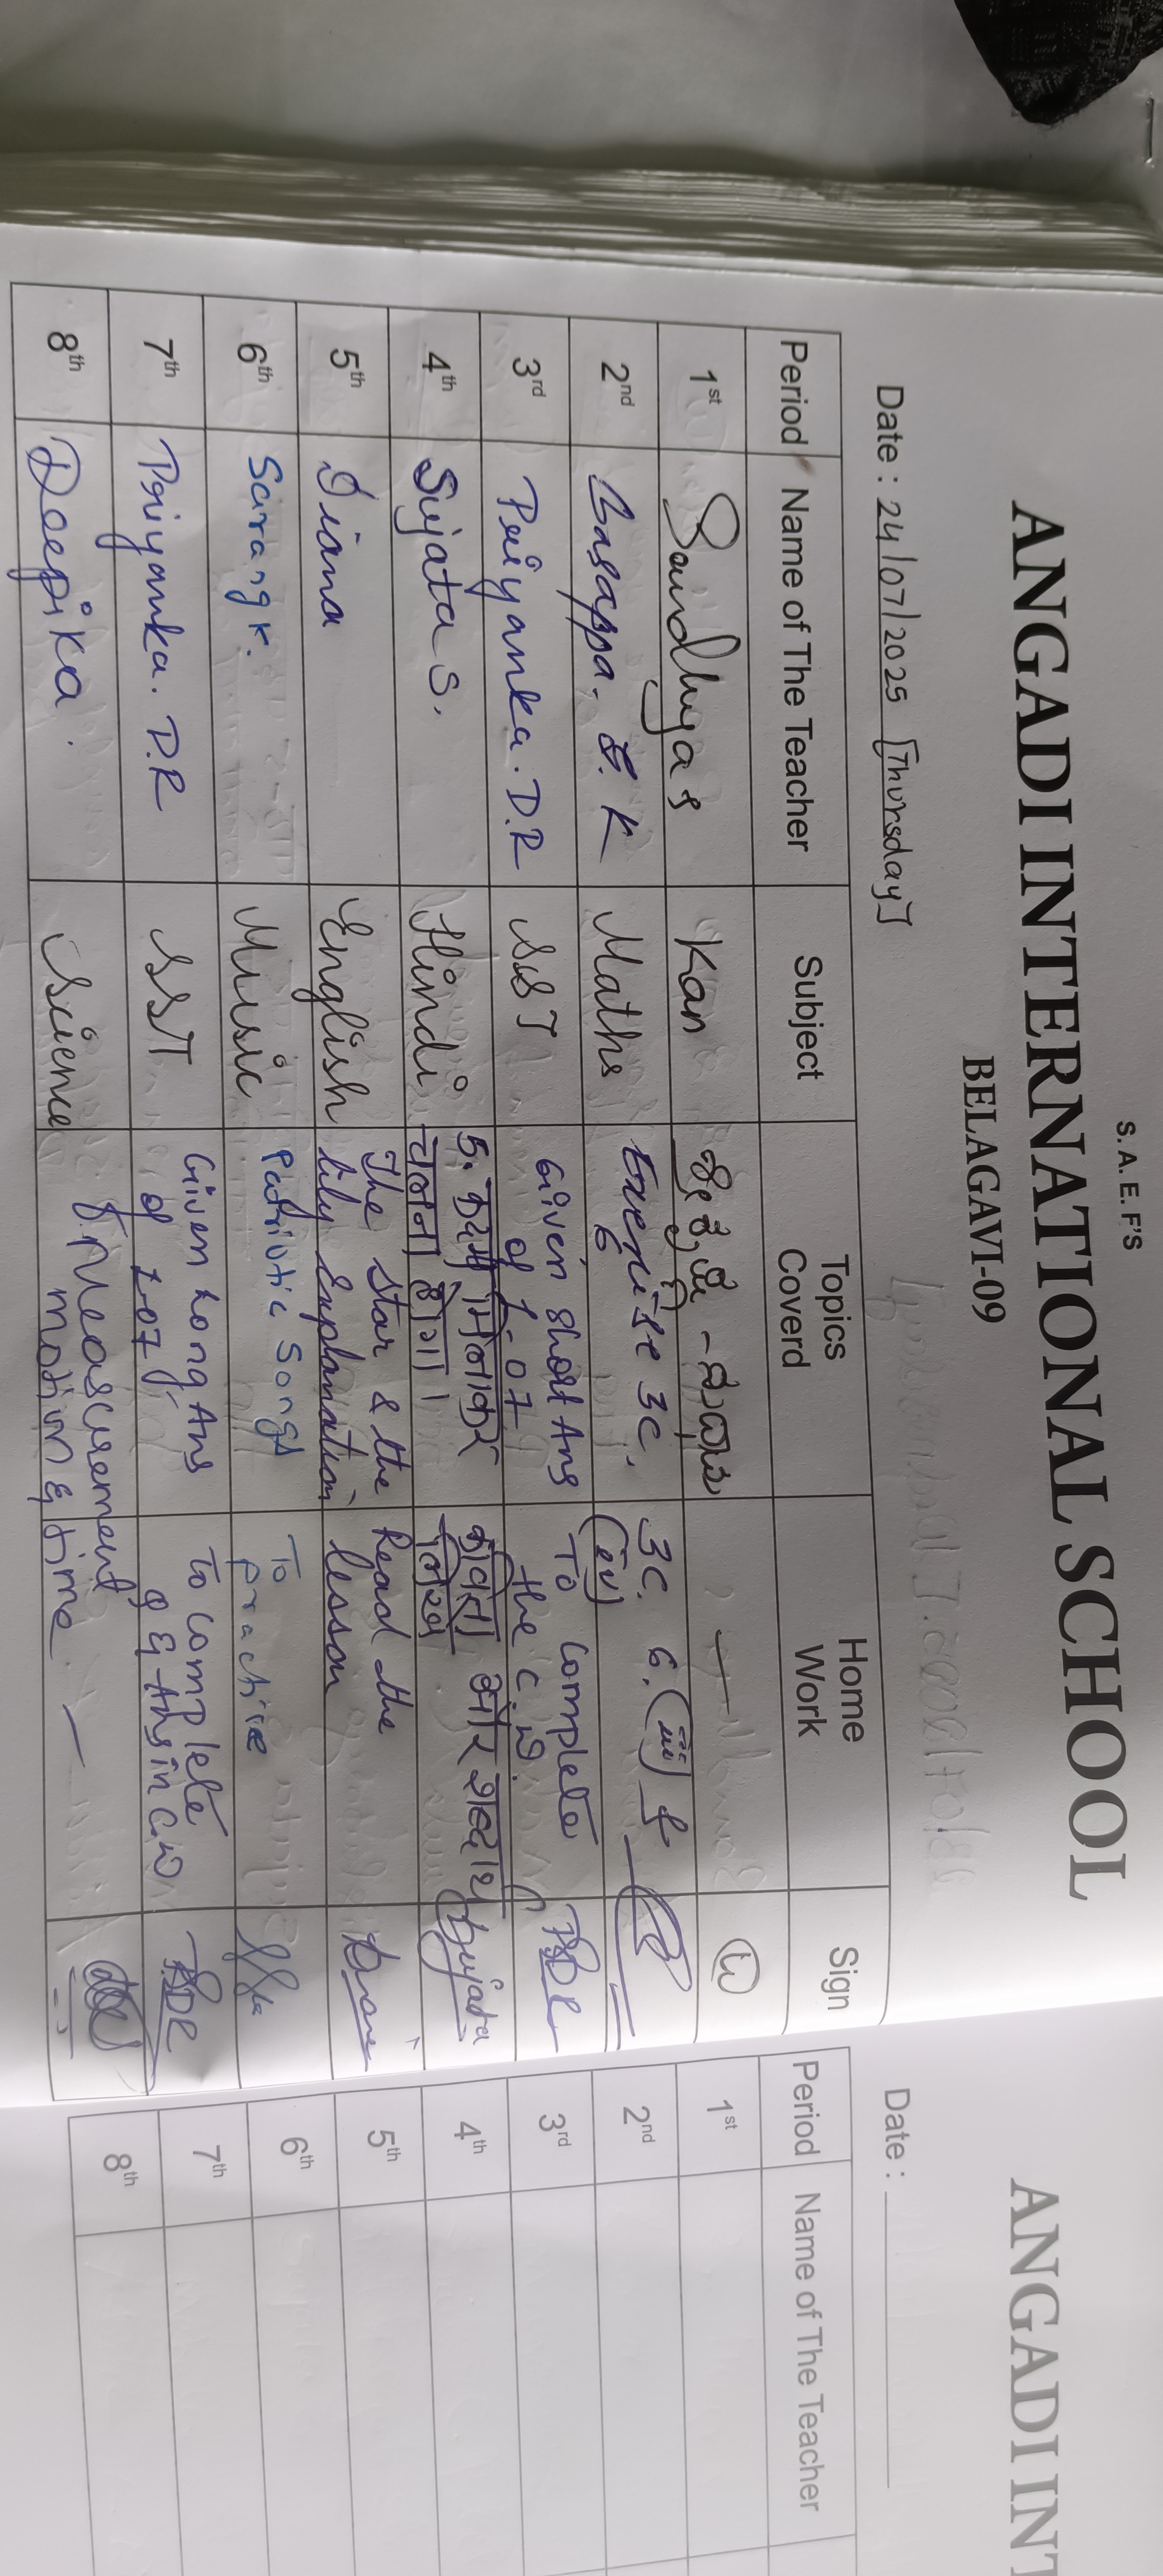 S. A. E. F'S
ANGADI INTERNATIONAL SCHOOL
BELAGAVI-09
Date : 24/07/2025 [Thursday]
Period Name of The Teacher Subject Topics Coverd Home Work Sign
1st Sandhya S Kan —
2nd Basappa. K Maths Exercise 3C. 3C. 6. (iii) &
(iv)
3rd Priyanka. D.R SST Given short Ans To complete
of L-07 the C.W. PDR
4th Sujata S. Hindi 5. कदम मिलाकर कविता और शब्दार्थ Sujata
चलना होगा।
5th Diana English The Star & the Read the
lily Explanation lesson
6th Sarang K. Music Patriotic Songs To
practice
7th Priyanka. D.R SST Given Long Ans To complete
of L-07 Q & Ans in C.W PDR
8th Deepika. Science Measurement
motion & time —
ANGADI INT
Date :
Period Name of The Teacher
1st
2nd
3rd
4th
5th
6th
7th
8th